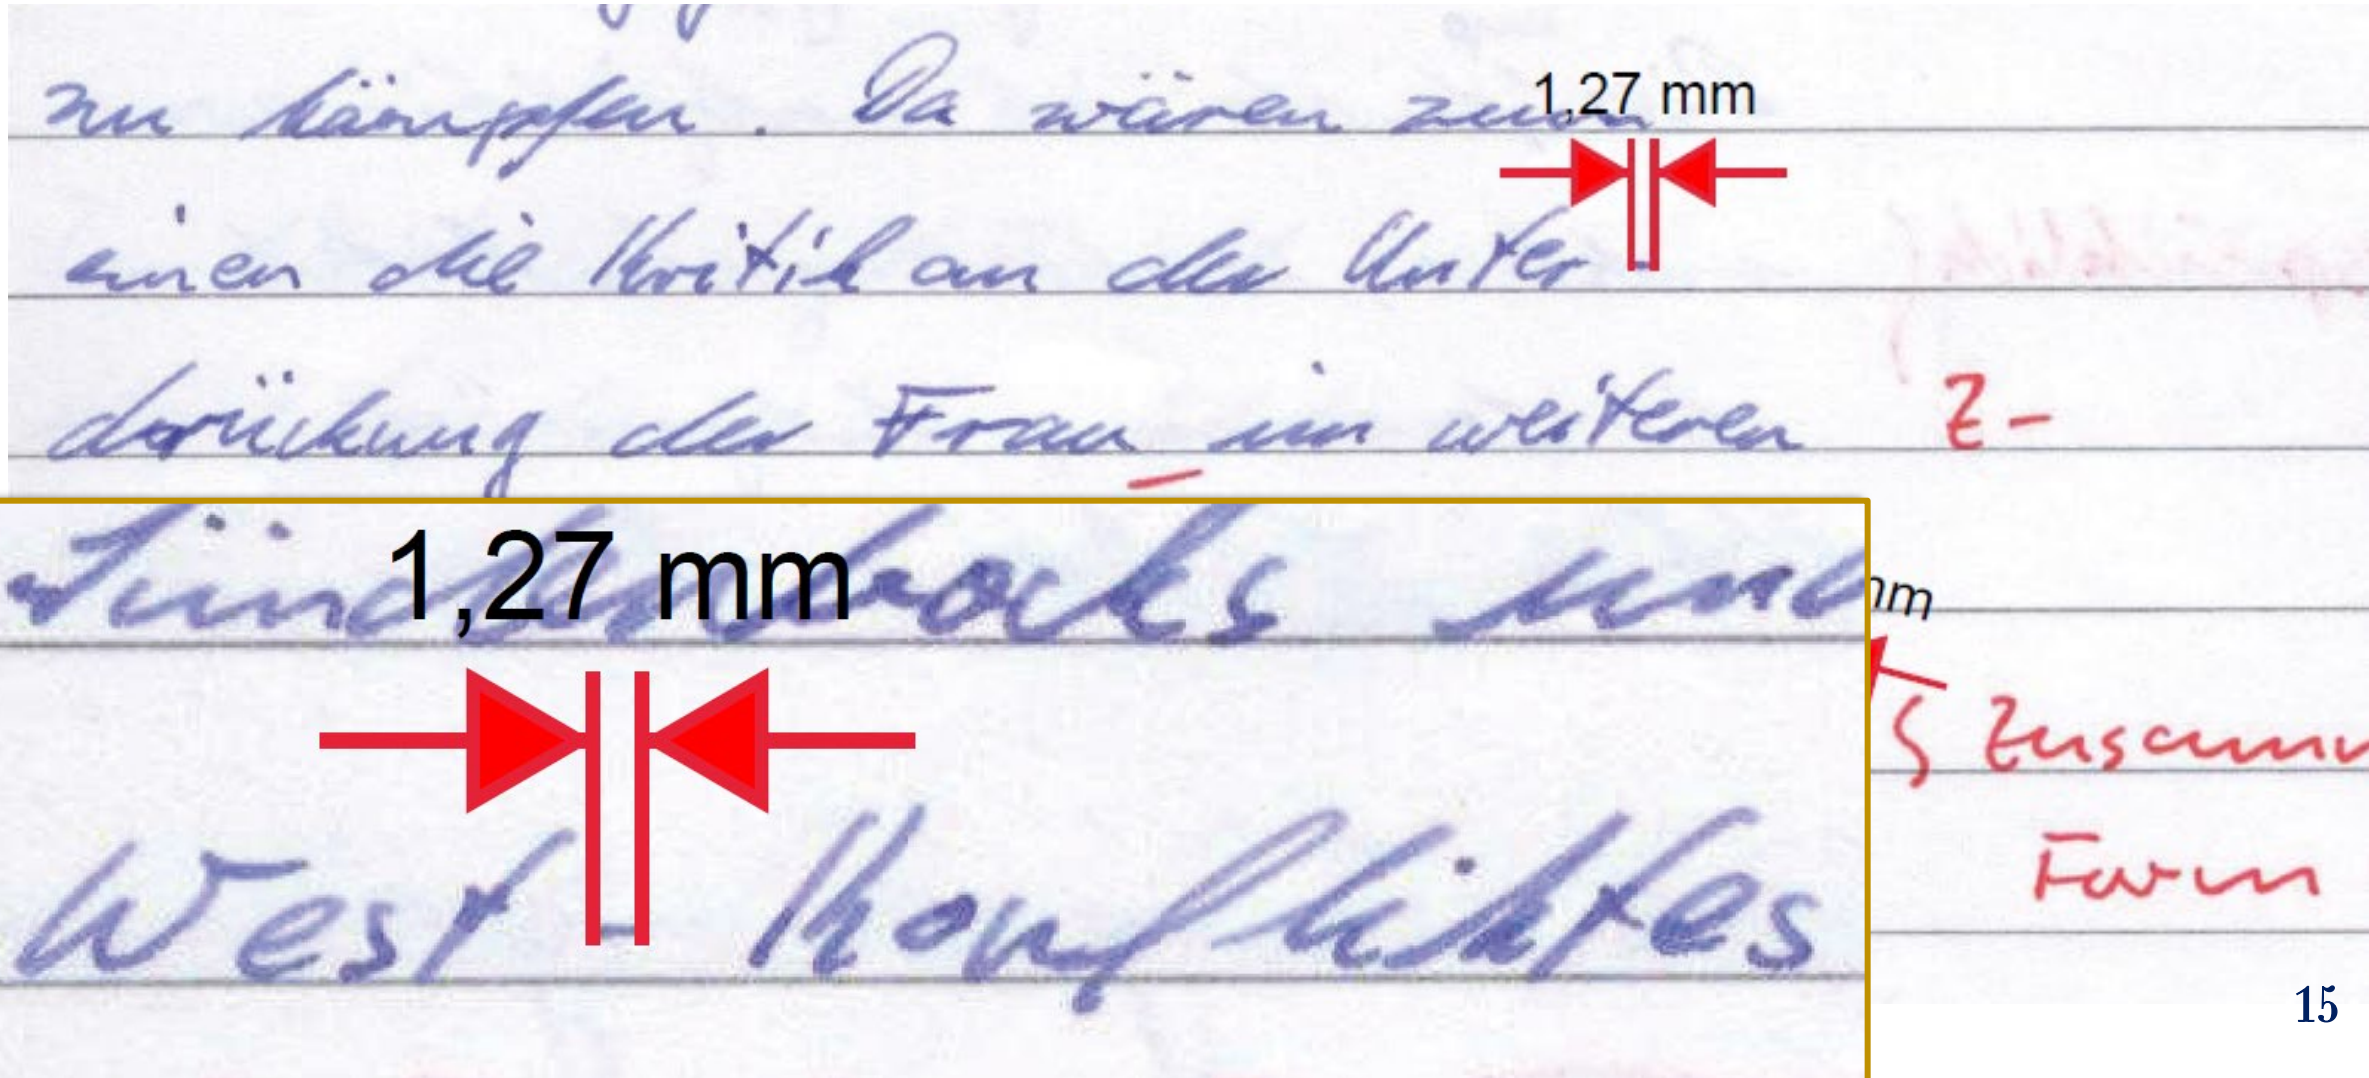 zu kämpfen. Da wären zum
1,27 mm
einen die Kritik an der Unter-
drückung der Frau im weiteren
Z-
Sündenbocks und
1,27 mm
West-Konfliktes
mm
Zusamm
Form
15